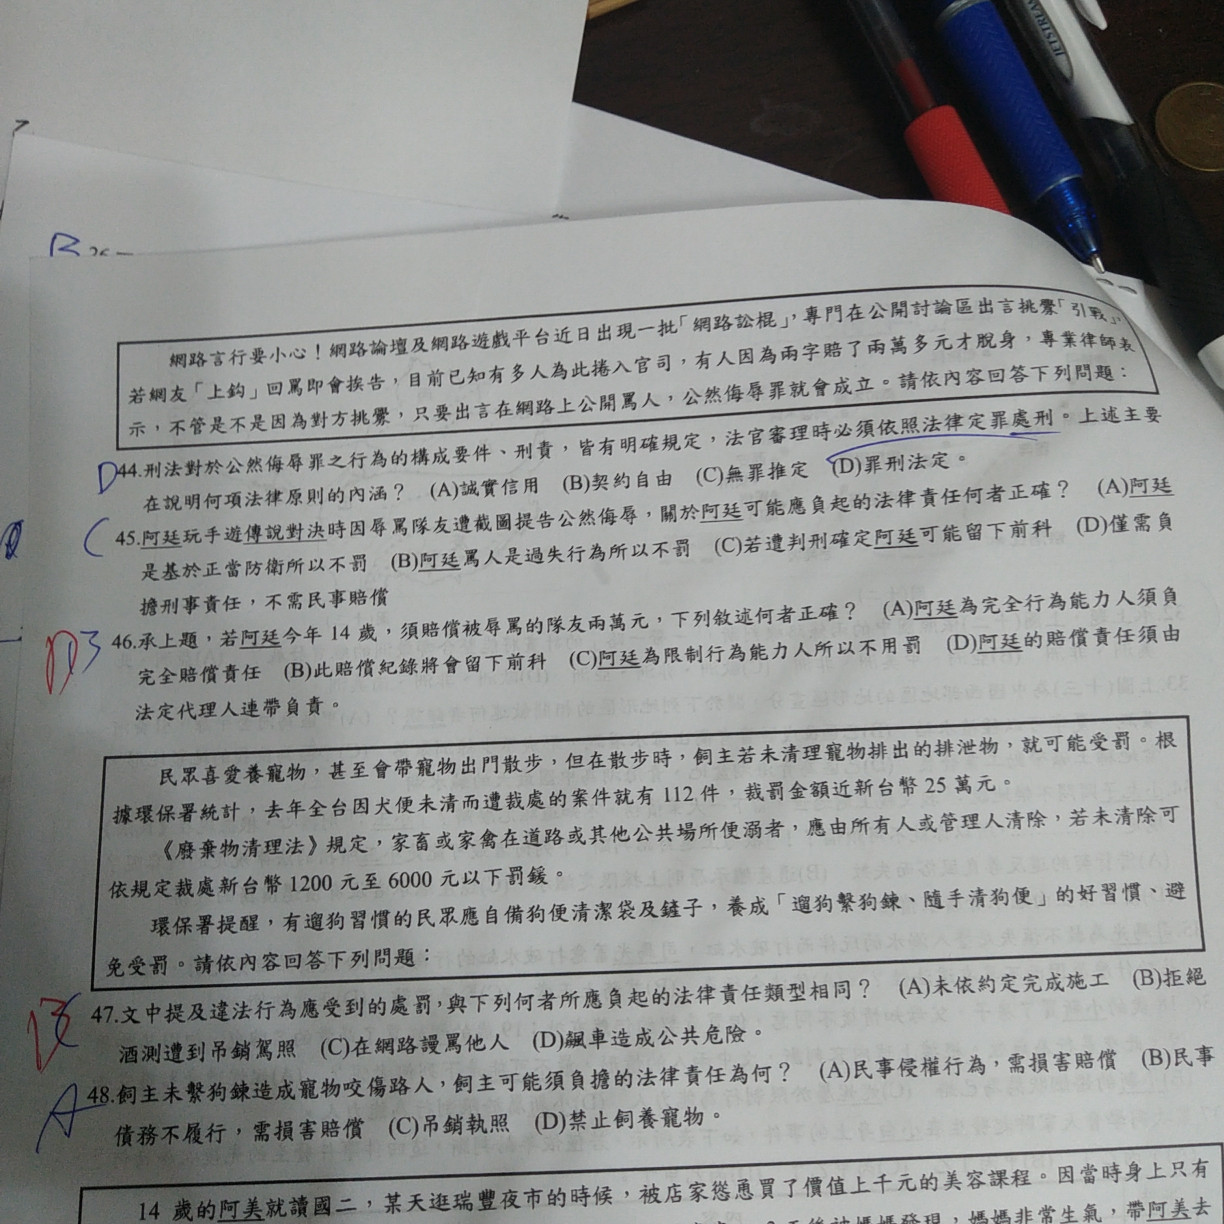 JETSTREAM
B 26
網路言行要小心！網路論壇及網路遊戲平台近日出現一批「網路訟棍」，專門在公開討論區出言挑釁「引戰」，
若網友「上鈎」回罵即會挨告，目前已知有多人為此捲入官司，有人因為兩字賠了兩萬多元才脫身，專業律師表
示，不管是不是因為對方挑釁，只要出言在網路上公開罵人，公然侮辱罪就會成立。請依內容回答下列問題：
D 44.刑法對於公然侮辱罪之行為的構成要件、刑責，皆有明確規定，法官審理時必須依照法律定罪處刑。上述主要
在說明何項法律原則的內涵？ (A)誠實信用 (B)契約自由 (C)無罪推定 (D)罪刑法定。
C 45.阿廷玩手遊傳說對決時因辱罵隊友遭截圖提告公然侮辱，關於阿廷可能應負起的法律責任何者正確？ (A)阿廷
是基於正當防衛所以不罰 (B)阿廷罵人是過失行為所以不罰 (C)若遭判刑確定阿廷可能留下前科 (D)僅需負
擔刑事責任，不需民事賠償
D 46.承上題，若阿廷今年 14 歲，須賠償被辱罵的隊友兩萬元，下列敘述何者正確？ (A)阿廷為完全行為能力人須負
完全賠償責任 (B)此賠償紀錄將會留下前科 (C)阿廷為限制行為能力人所以不用罰 (D)阿廷的賠償責任須由
法定代理人連帶負責。
民眾喜愛養寵物，甚至會帶寵物出門散步，但在散步時，飼主若未清理寵物排出的排泄物，就可能受罰。根
據環保署統計，去年全台因犬便未清而遭裁處的案件就有 112 件，裁罰金額近新台幣 25 萬元。
《廢棄物清理法》規定，家畜或家禽在道路或其他公共場所便溺者，應由所有人或管理人清除，若未清除可
依規定裁處新台幣 1200 元至 6000 元以下罰鍰。
環保署提醒，有遛狗習慣的民眾應自備狗便清潔袋及鏟子，養成「遛狗繫狗鍊、隨手清狗便」的好習慣、避
免受罰。請依內容回答下列問題：
B 47.文中提及違法行為應受到的處罰，與下列何者所應負起的法律責任類型相同？ (A)未依約定完成施工 (B)拒絕
酒測遭到吊銷駕照 (C)在網路謾罵他人 (D)飆車造成公共危險。
A 48.飼主未繫狗鍊造成寵物咬傷路人，飼主可能須負擔的法律責任為何？ (A)民事侵權行為，需損害賠償 (B)民事
債務不履行，需損害賠償 (C)吊銷執照 (D)禁止飼養寵物。
14 歲的阿美就讀國二，某天逛瑞豐夜市的時候，被店家慫恿買了價值上千元的美容課程。因當時身上只有
後被媽媽發現，媽媽非常生氣，帶阿美去